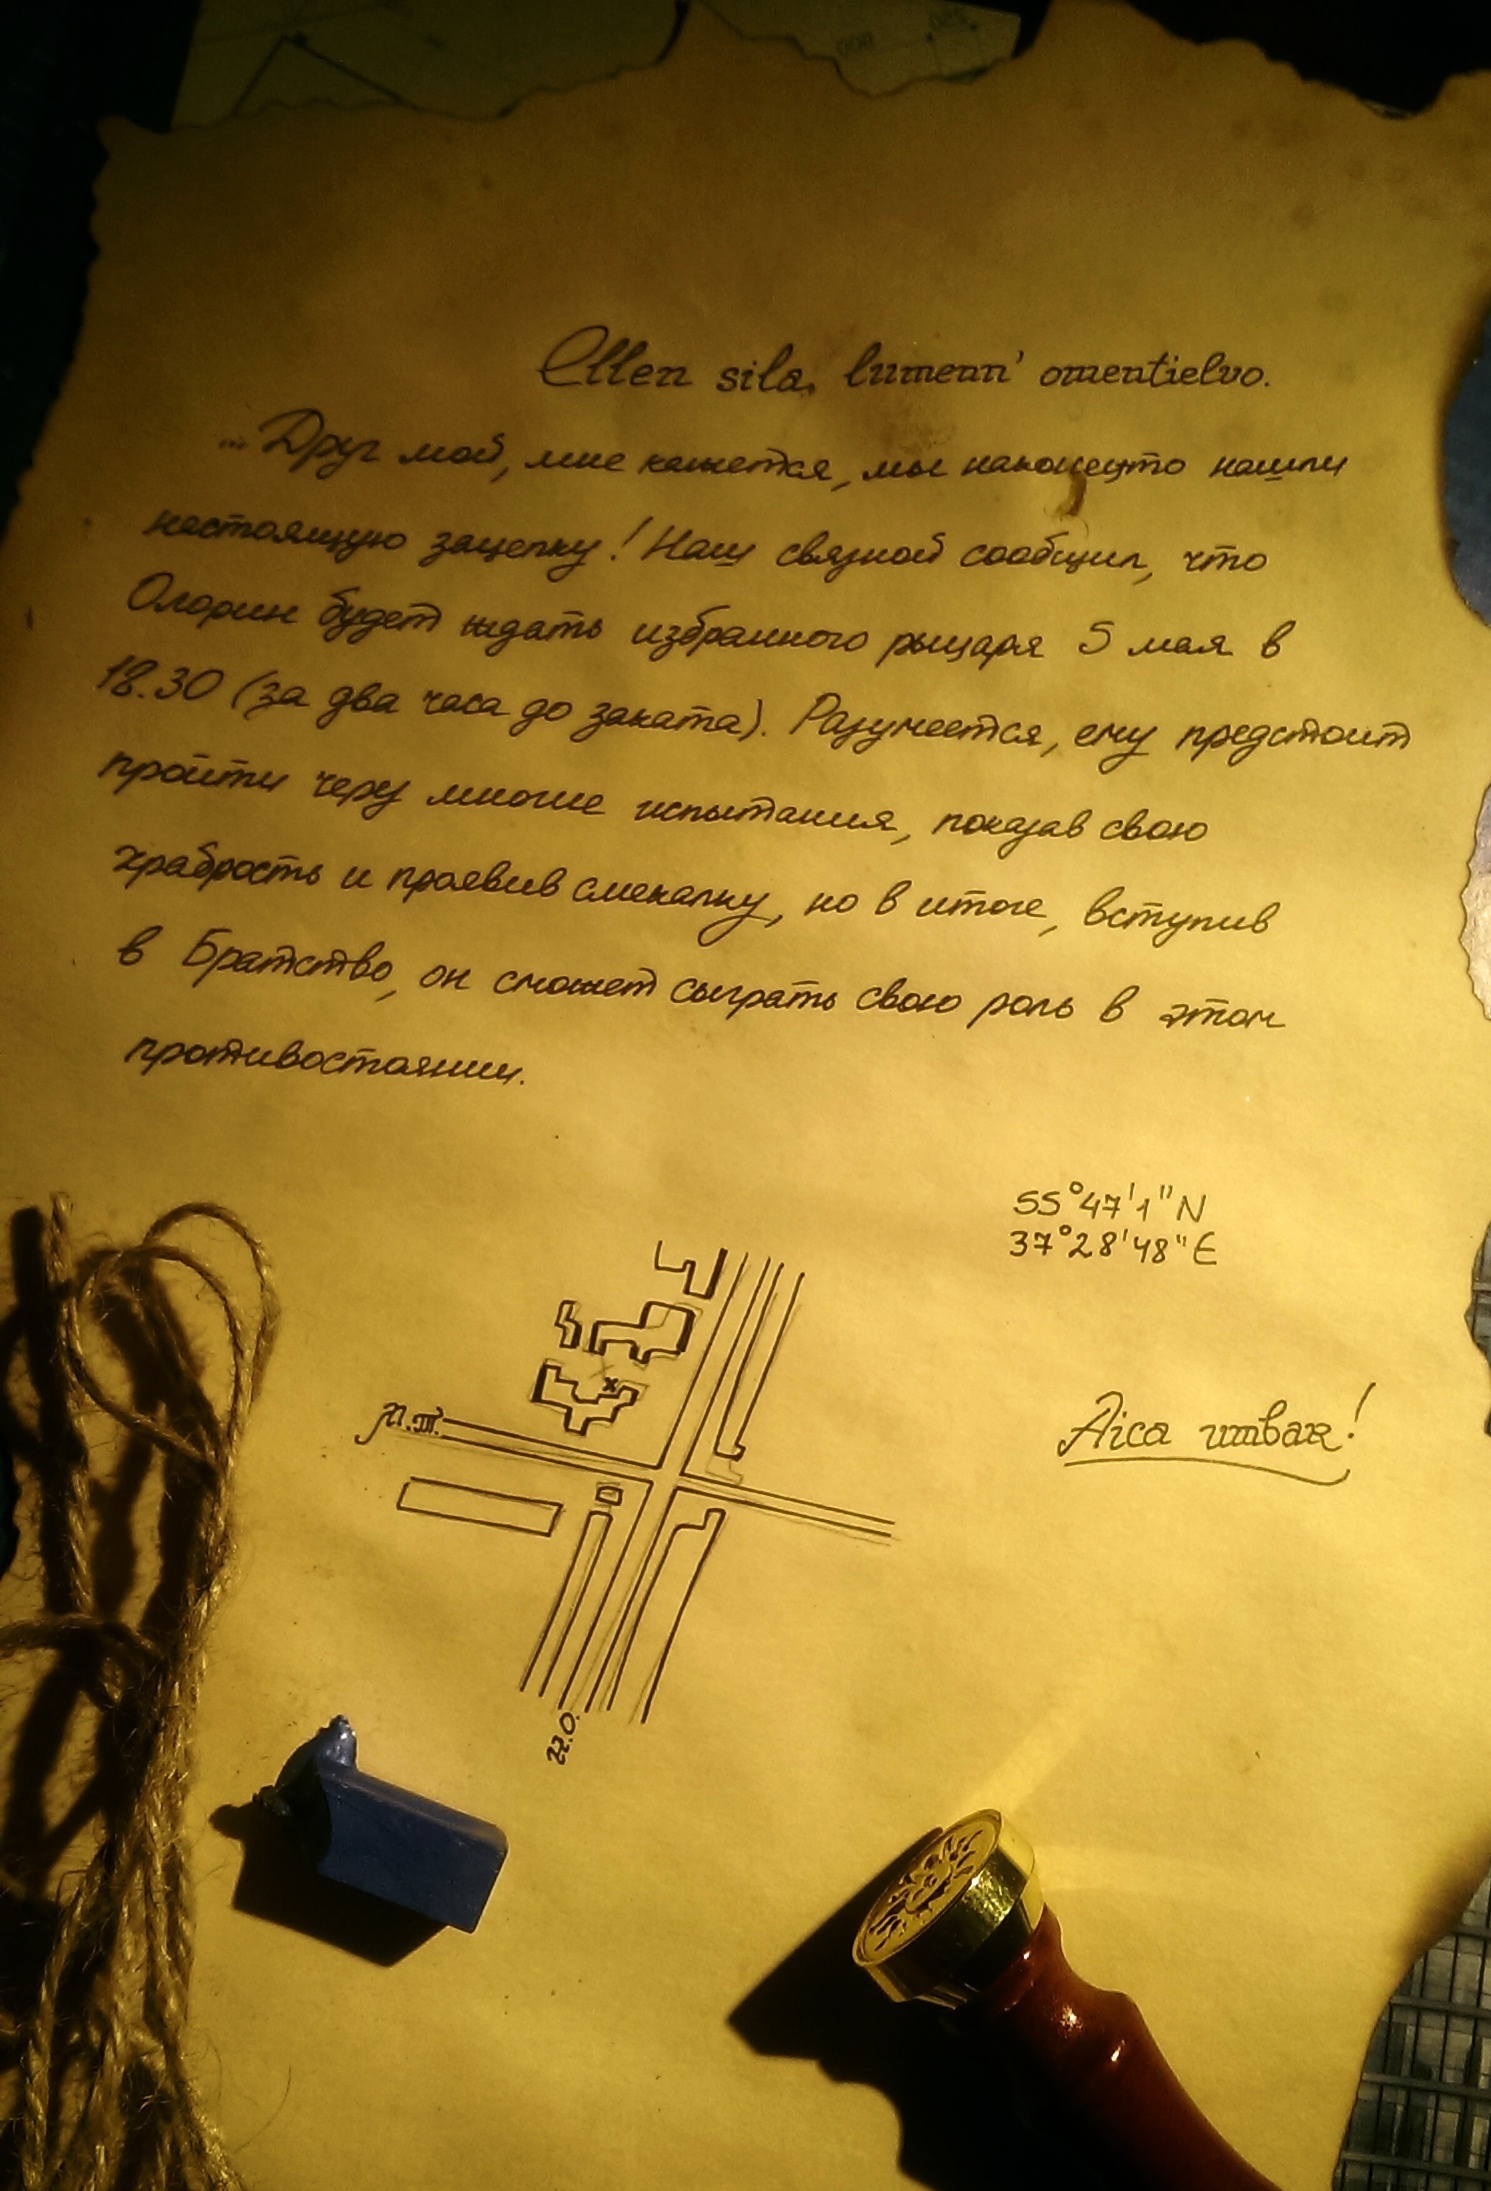 Ellen sila, lumenn' omentielvo.
... Друг мой, мне кажется, мы наконецто нашли
настоящую зацепку! Наш связной сообщил, что
Олорин будет ждать избранного рыцаря 5 мая в
18.30 (за два часа до заката). Разумеется, ему предстоит
пройти через многие испытания, показав свою
храбрость и проявив смекалку, но в итоге, вступив
в Братство, он сможет сыграть свою роль в этом
противостоянии.
55°47'1"N
37°28'48"E
Aica umbar!